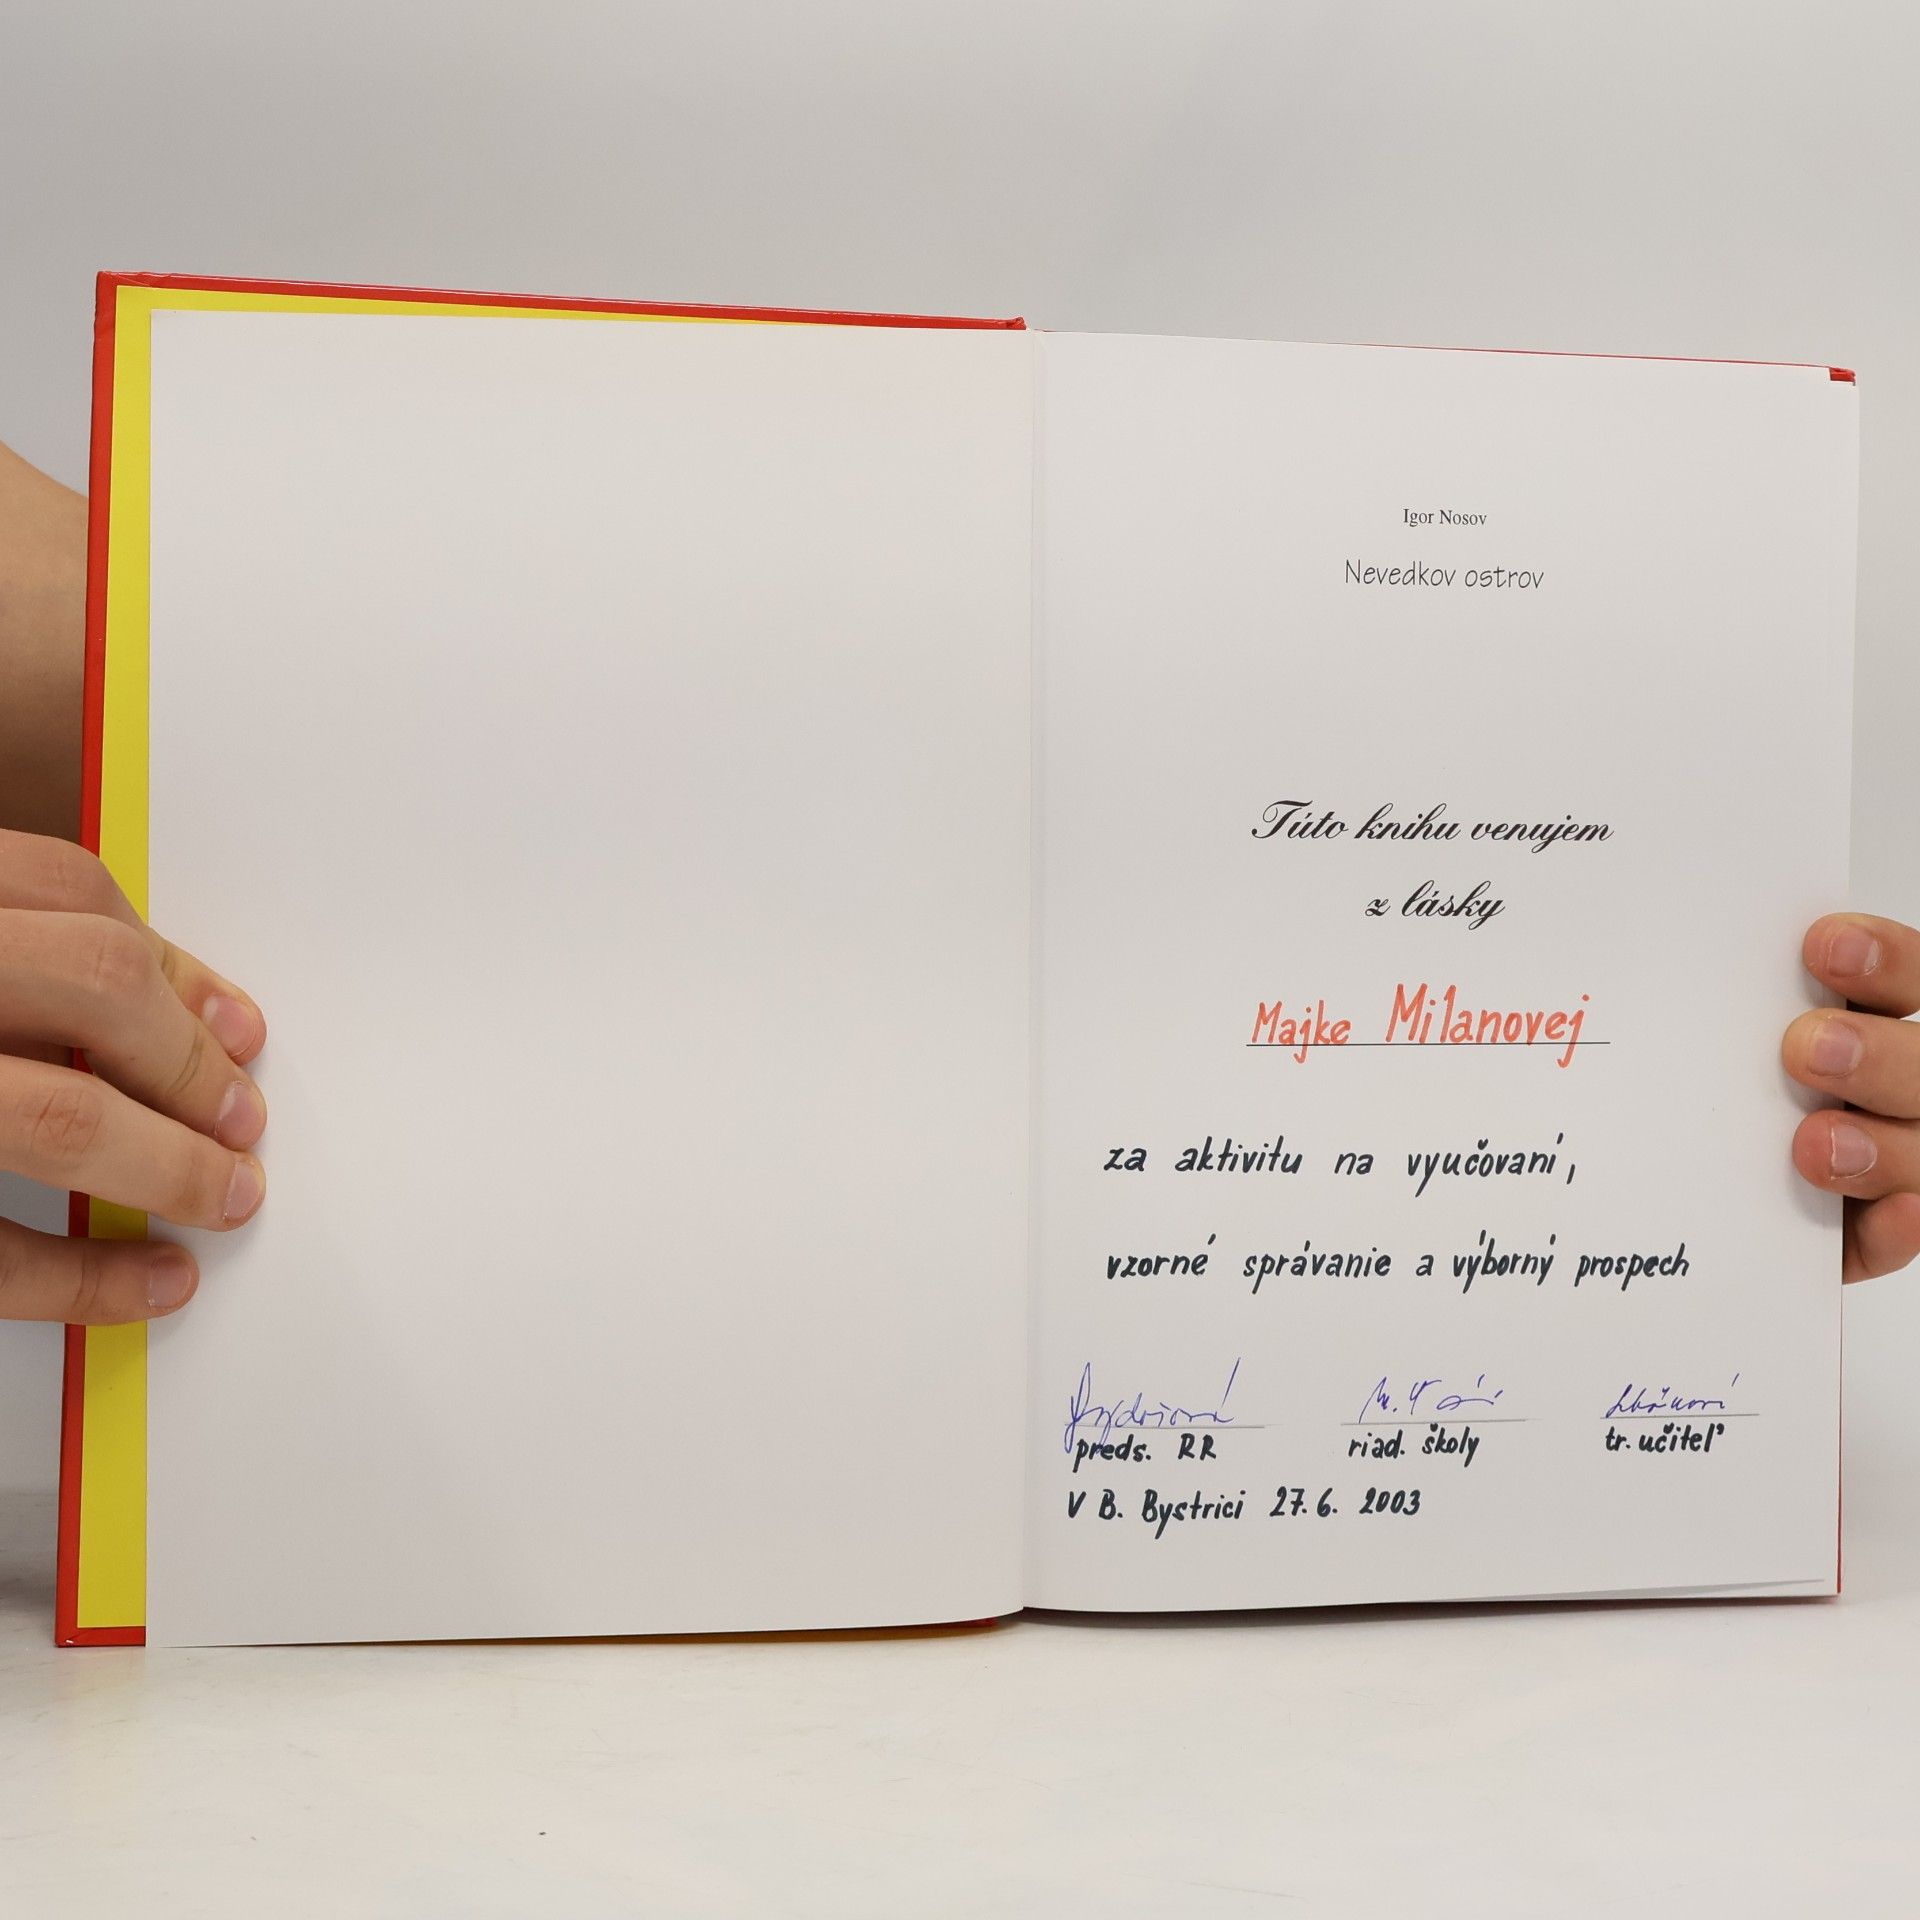 Igor Nosov
Nevedkov ostrov
Túto knihu venujem
z lásky
Majke Milanovej
za aktivitu na vyučovaní,
vzorné správanie a výborný prospech
preds. RR riad. školy tr. učiteľ
V B. Bystrici 27.6. 2003